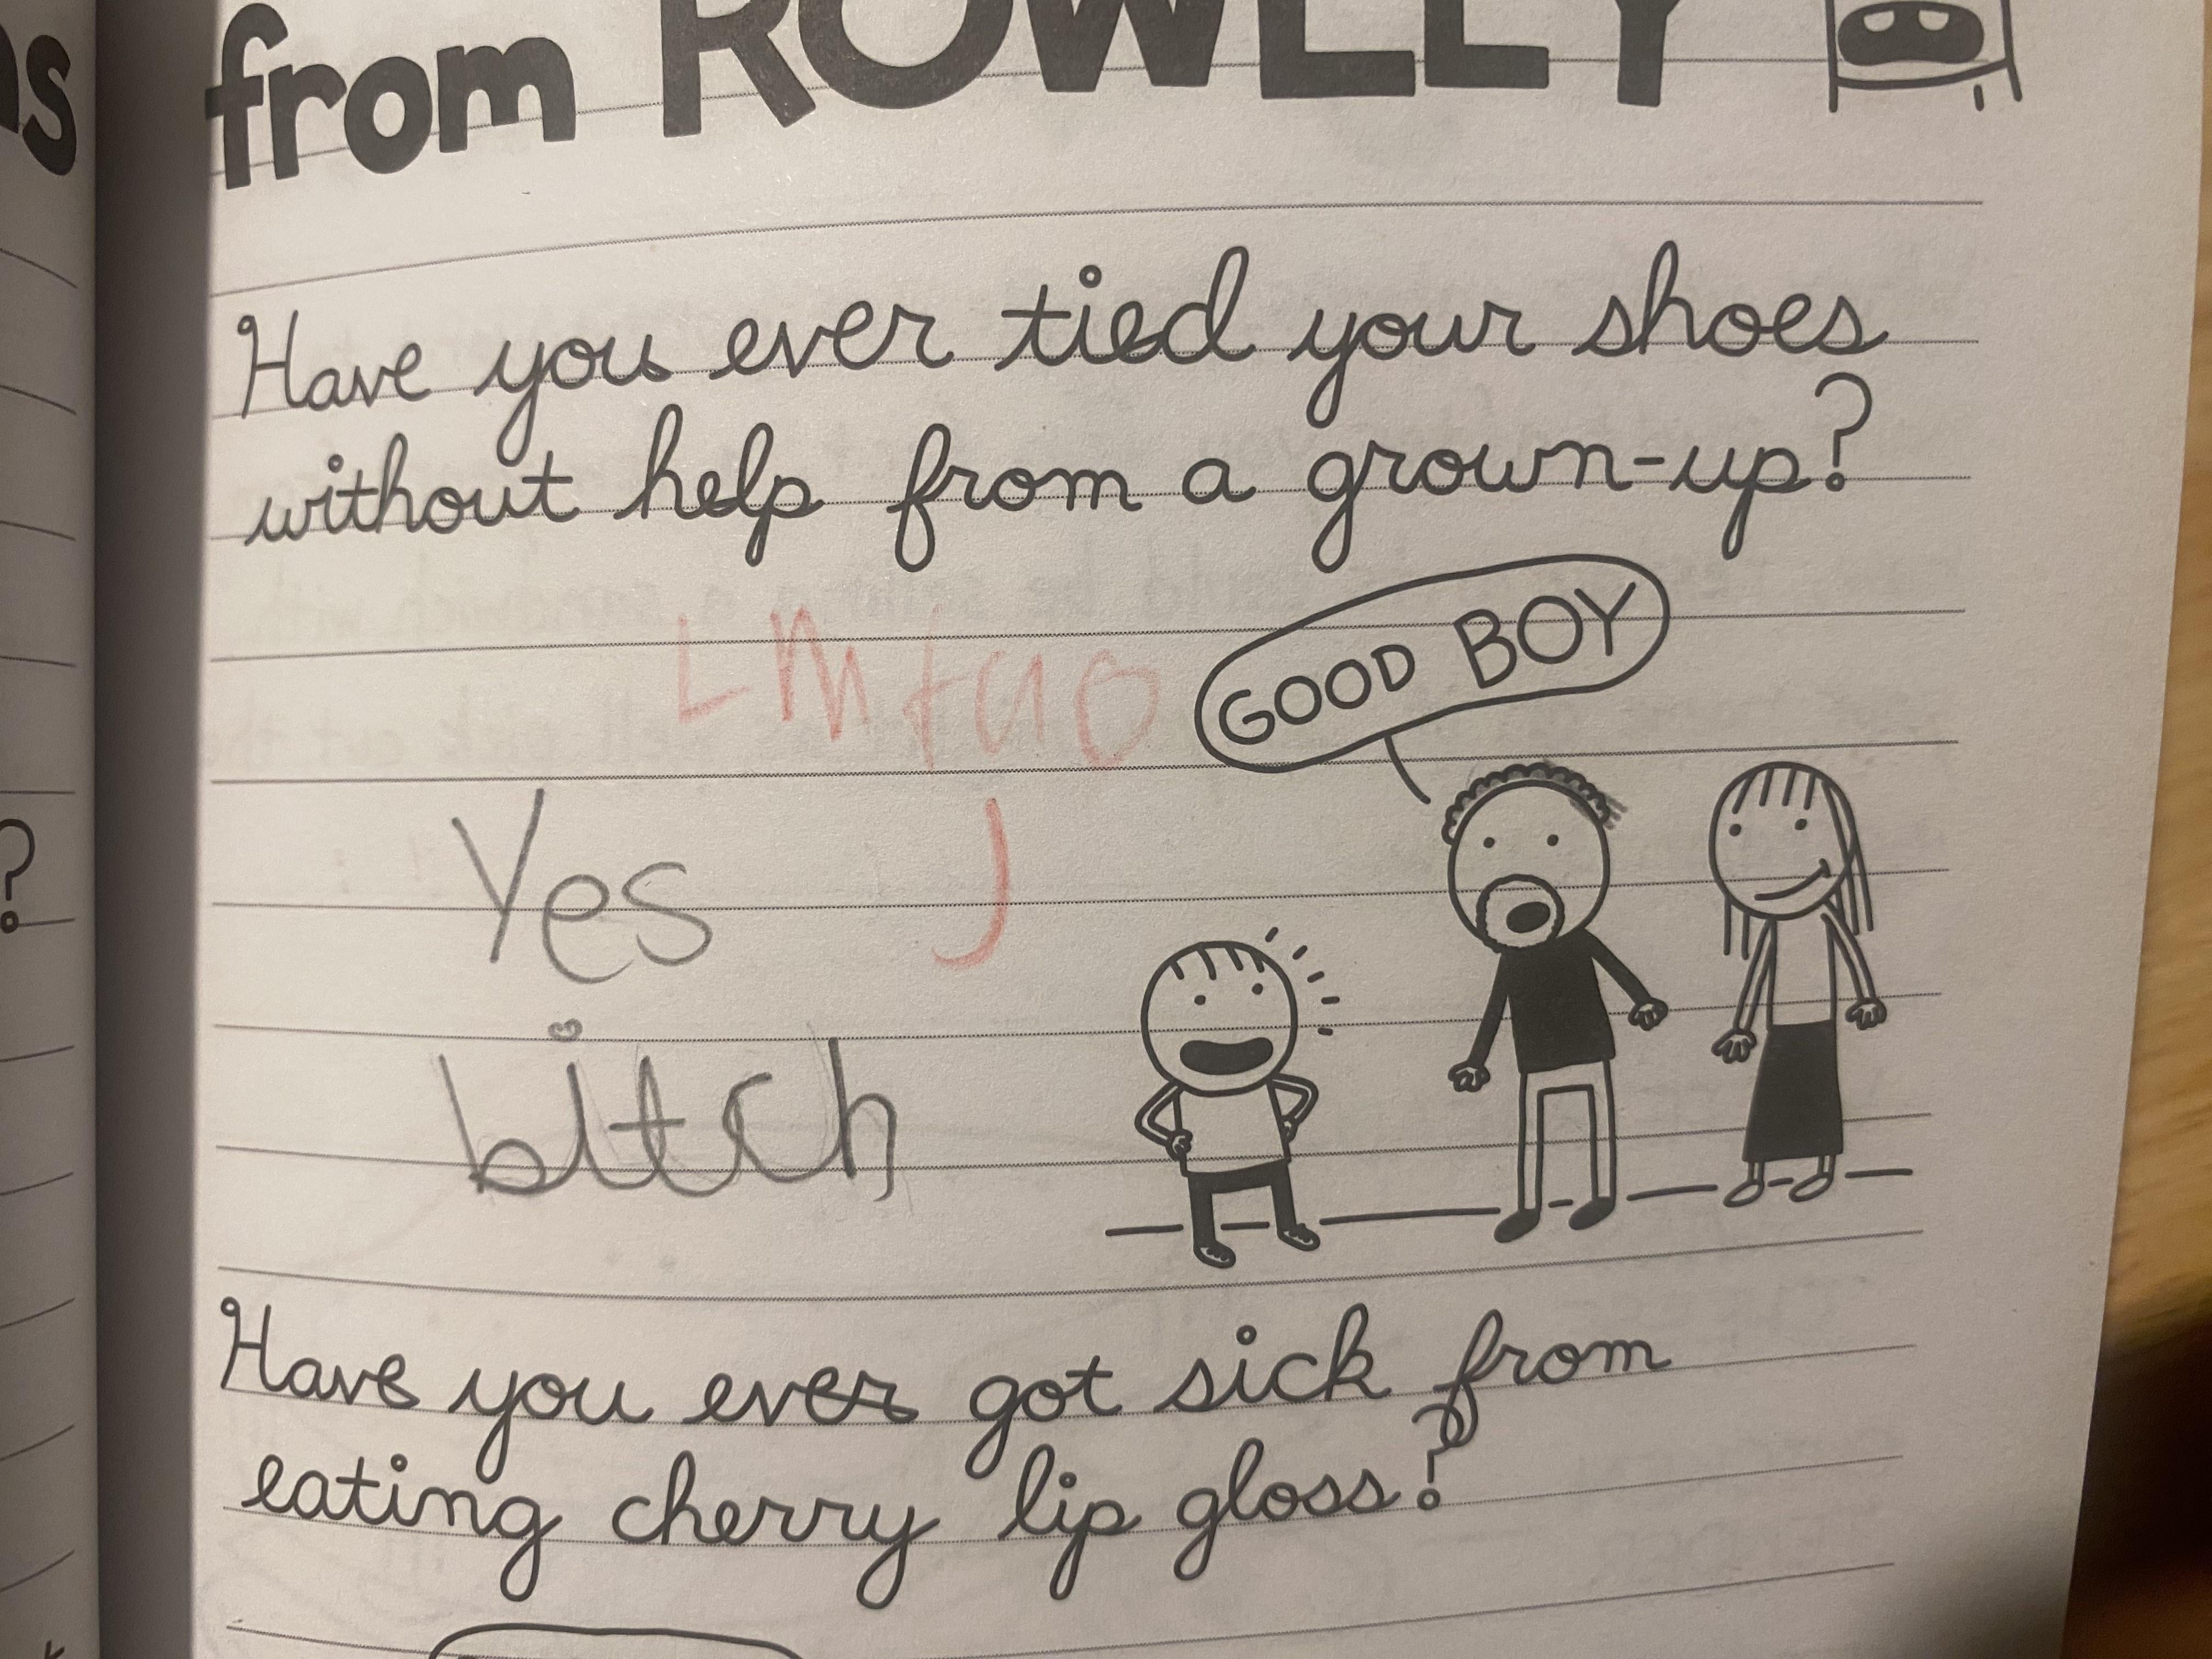 from ROWLEY
Have you ever tied your shoes
without help from a grown-up?
Lmfao
GOOD BOY
Yes
bitch
Have you ever got sick from
eating cherry lip gloss?